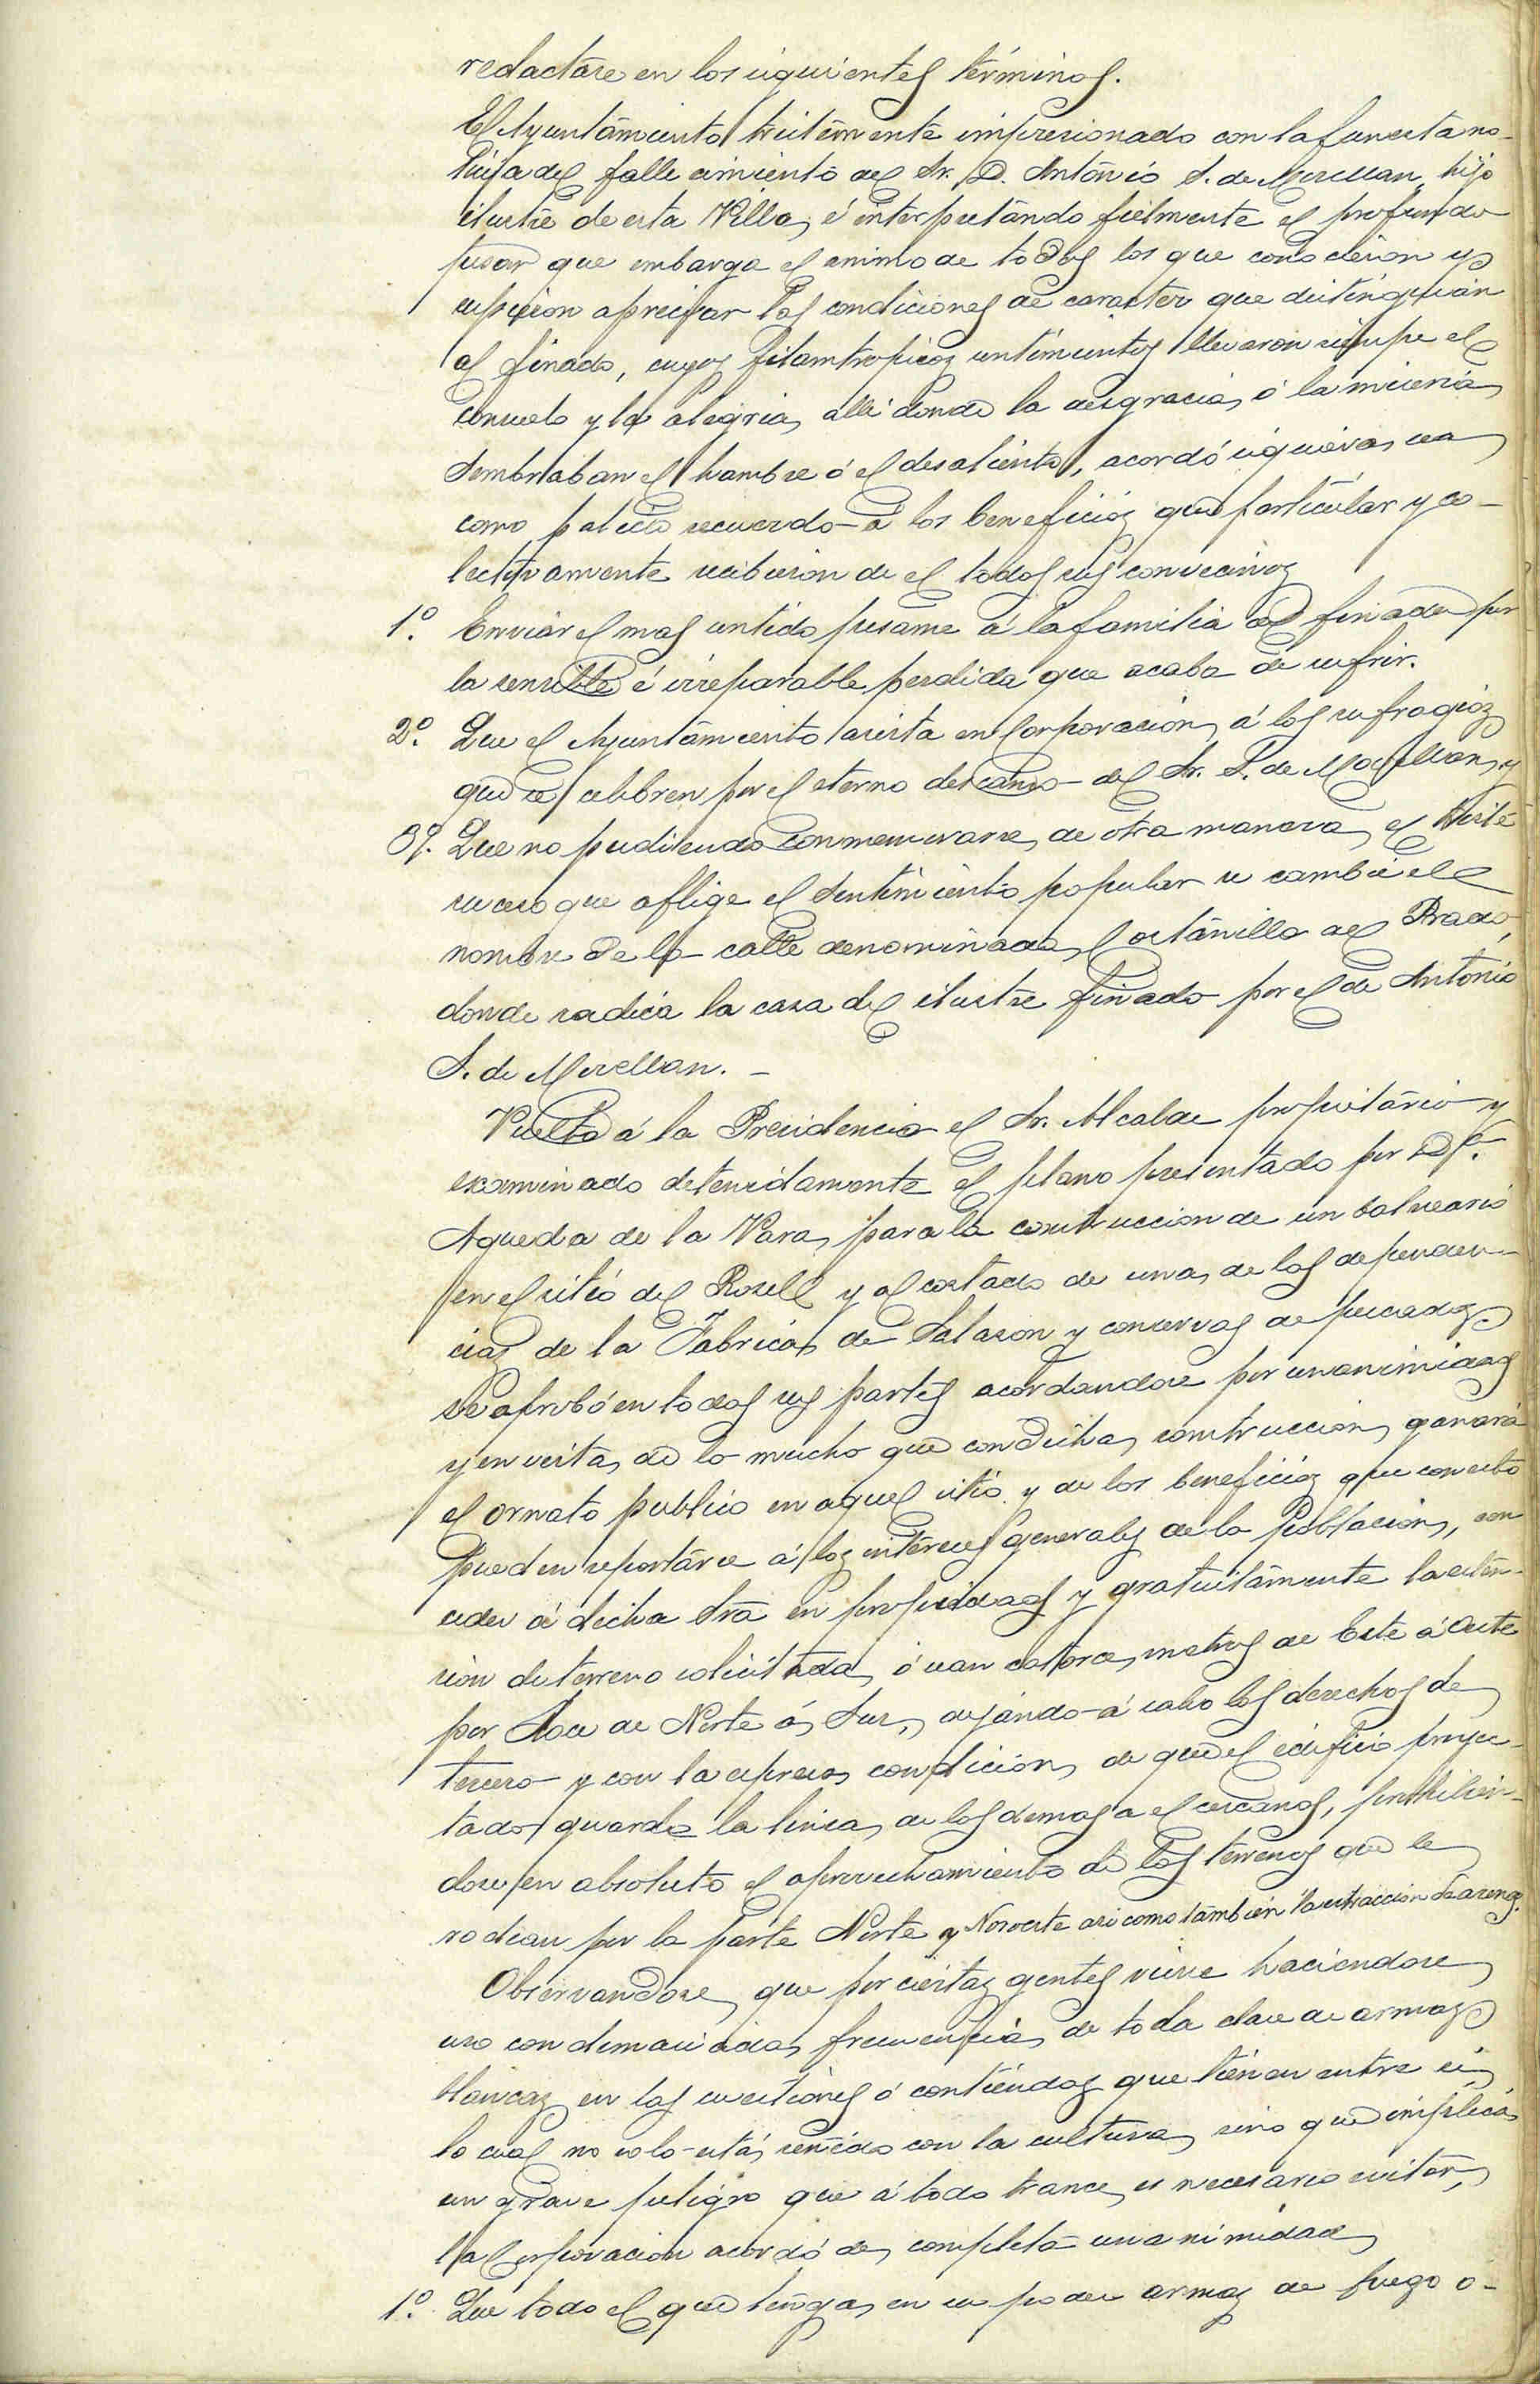 redactare en los siguientes términos.
El Ayuntamiento tristemente impresionado con la funesta no-
ticia del fallecimiento del Sr. D. Antonio S. de Movellan, hijo
ilustre de esta Villa, é interpretando fielmente el profundo
pesar que embarga el animo de todos los que conocieron y
supieron apreciar las condiciones de caracter que distinguian
al finado, cuyos filantropicos sentimientos llevaron siempre el
consuelo y la alegria, alli donde la desgracia, ó la miseria,
sembraban el hambre ó el desaliento, acordó siquiera, sea
como palido recuerdo á los beneficios que particular y co-
lectivamente recibieron de el todos sus convecinos
1º. Enviar el mas sentido pesame á la familia del finado por
la sensible é irreparable perdida que acaba de sufrir.
2º. Que el Ayuntamiento asista en Corporacion, á los sufragios
que se celebren por el eterno descanso del Sr. S. de Movellan, y
3º. Que no pudiendo conmemorarse, de otra manera, el triste
suceso que aflige el sentimiento popular se cambie el
nombre de la calle denominada, Costanilla del Prado,
donde radica la casa del ilustre finado por el de Antonio
S. de Movellan. -
Vuelto á la Presidencia el Sr. Alcalde propietario y
examinado detenidamente el plano presentado por Dª.
Agueda de la Vara, para la construccion de un balneario
en el sitio del Rosell y al costado de una, de las dependen-
cias de la Fabrica, de Salazon y conservas de pescados
se aprobó en todas sus partes acordandose por unanimidad
y en vista, de lo mucho que con dicha, construccion, ganará
el ornato publico en aquel sitio y de los beneficios que con esto
pueden reportarse á los intereses generales de la poblacion, con
ceder á dicha Sra en propiedad y gratuitamente la esten-
sion de terreno solicitada, ó sean catorce, metros de Este á Oeste
por doce de Norte á Sur, dejando á salvo los derechos de
tercero y con la espresa, condicion, de que el edificio proyec-
tado guarde la linea, de los demas a el cercanos, prohibien-
dose en absoluto el aprovechamiento de los terrenos que le
rodean por la parte Norte y Noroeste asi como tambien la estraccion de arenas.
Observandose, que por ciertas gentes viene haciendose,
uso con demasiada, frecuencia, de toda clase de armas
blancas, en las cuestiones ó contiendas que tienen entre si,
lo cual no solo está, reñido con la cultura, sino que implica,
un grave peligro que á todo trance, es necesario evitar,
la Corporacion acordó de, completa unanimidad,
1º. Que todo el que tenga, en su poder armas de fuego o-